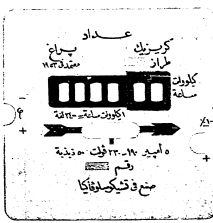 عداد
كريزيك براغ
طراز معتمد في ١٩٥٣
كيلووات
ساعة
١ كيلووات ساعة = ٢٤٠٠ لفة
٥ أمبير ١٩٠-٢٣٠ ڤولت ٥٠ ذبذبة
رقم
صنع في تشيكوسلوڤاكيا